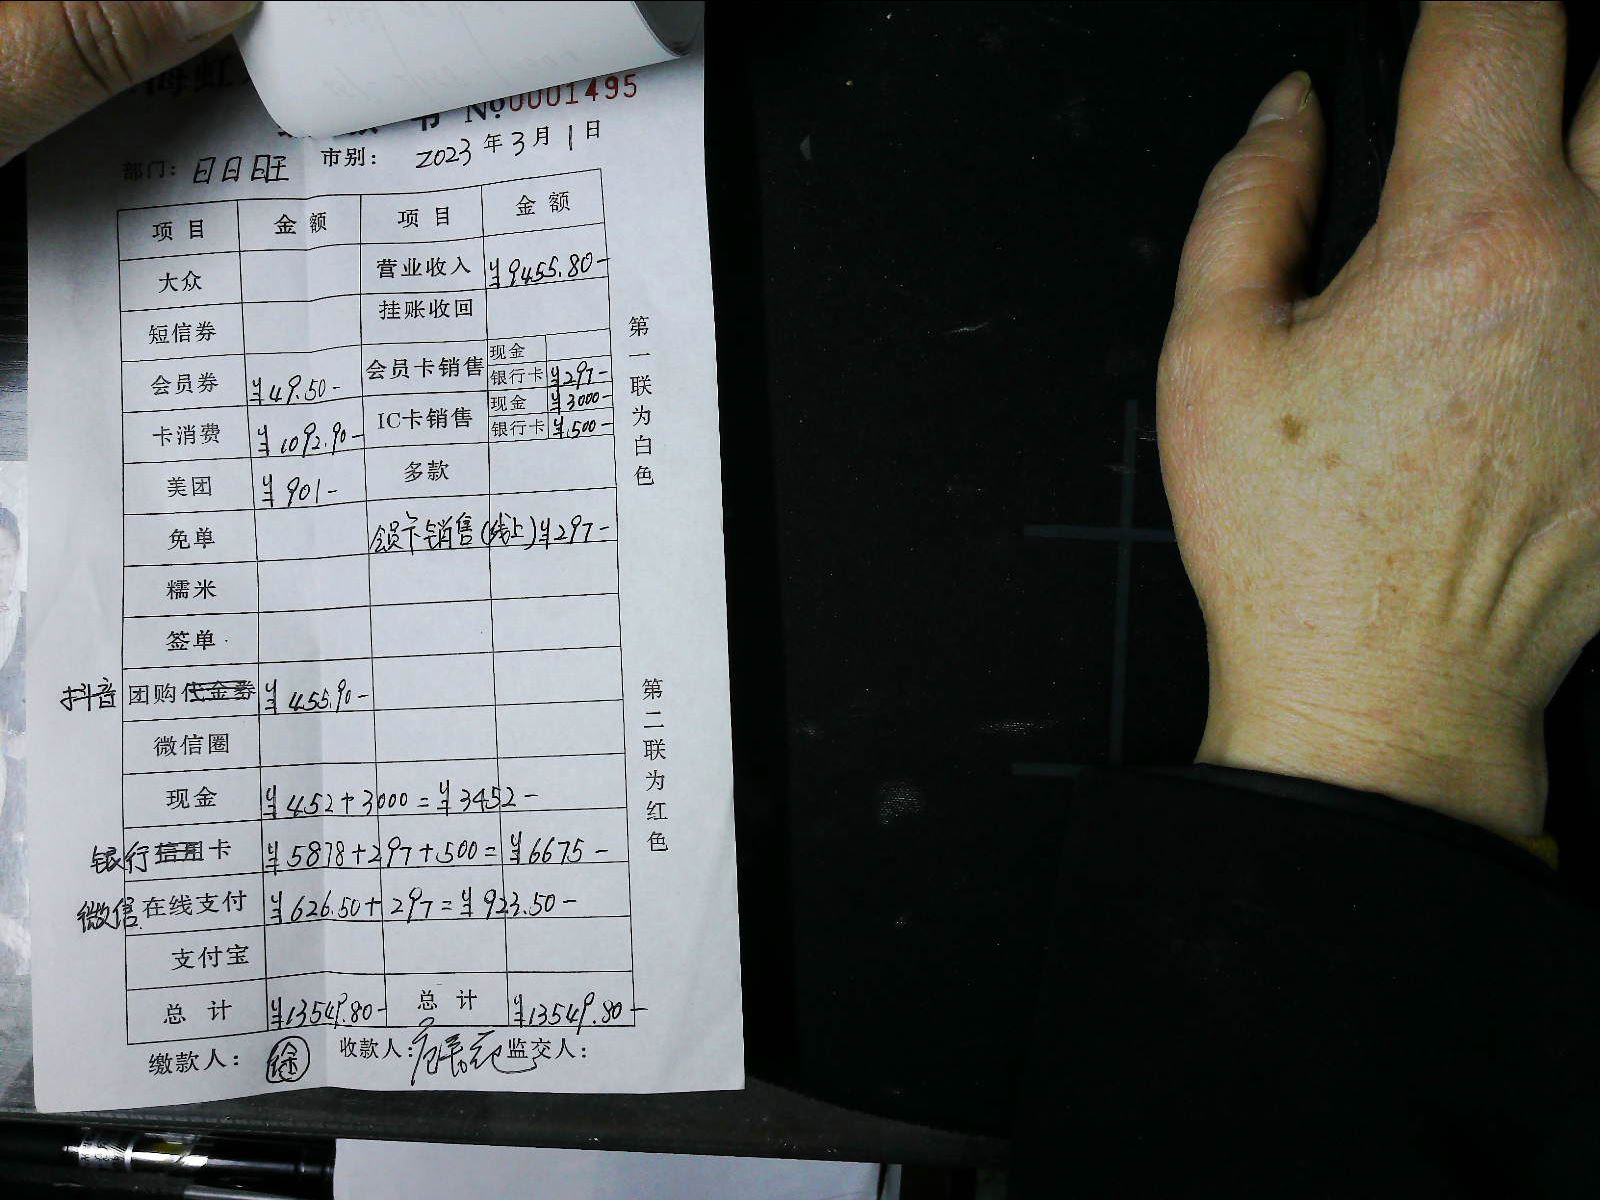 海虹
书 №0001495
部门: 日日旺 市别: 2023年3月1日
项目 金额 项目 金额
大众 营业收入 ¥9455.80-
短信券 挂账收回
会员券 ¥49.50- 会员卡销售 现金
银行卡 ¥297-
卡消费 ¥1092.90- IC卡销售 现金 ¥3000-
银行卡 ¥500-
美团 ¥901- 多款
免单 会员卡销售(线上) ¥297-
糯米
签单
抖音 团购代金券 ¥455.90-
微信圈
现金 ¥452+3000=¥3452-
银行信用卡 ¥5878+297+500=¥6675-
微信 在线支付 ¥626.50+297=¥923.50-
支付宝
总计 ¥13549.80- 总计 ¥13549.80-
缴款人: 徐 收款人: 监交人:
第一联为白色
第二联为红色